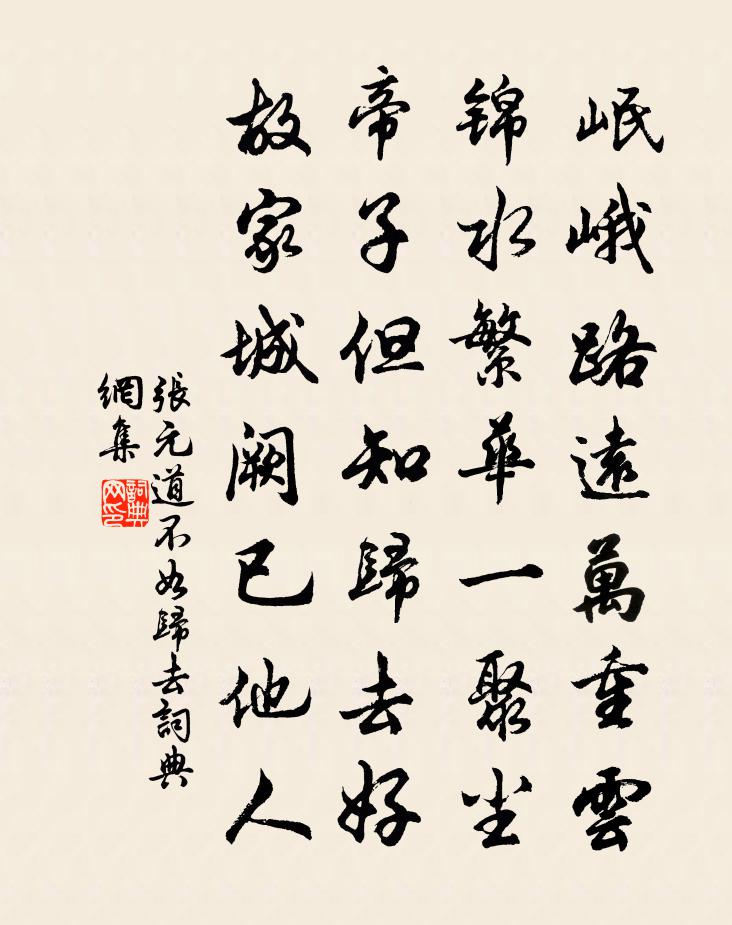 岷峨路遠萬重雲
锦水繁華一聚尘
帝子但知歸去好
故家城阙已他人
張元道不如歸去詞典
網集
詞典
网印